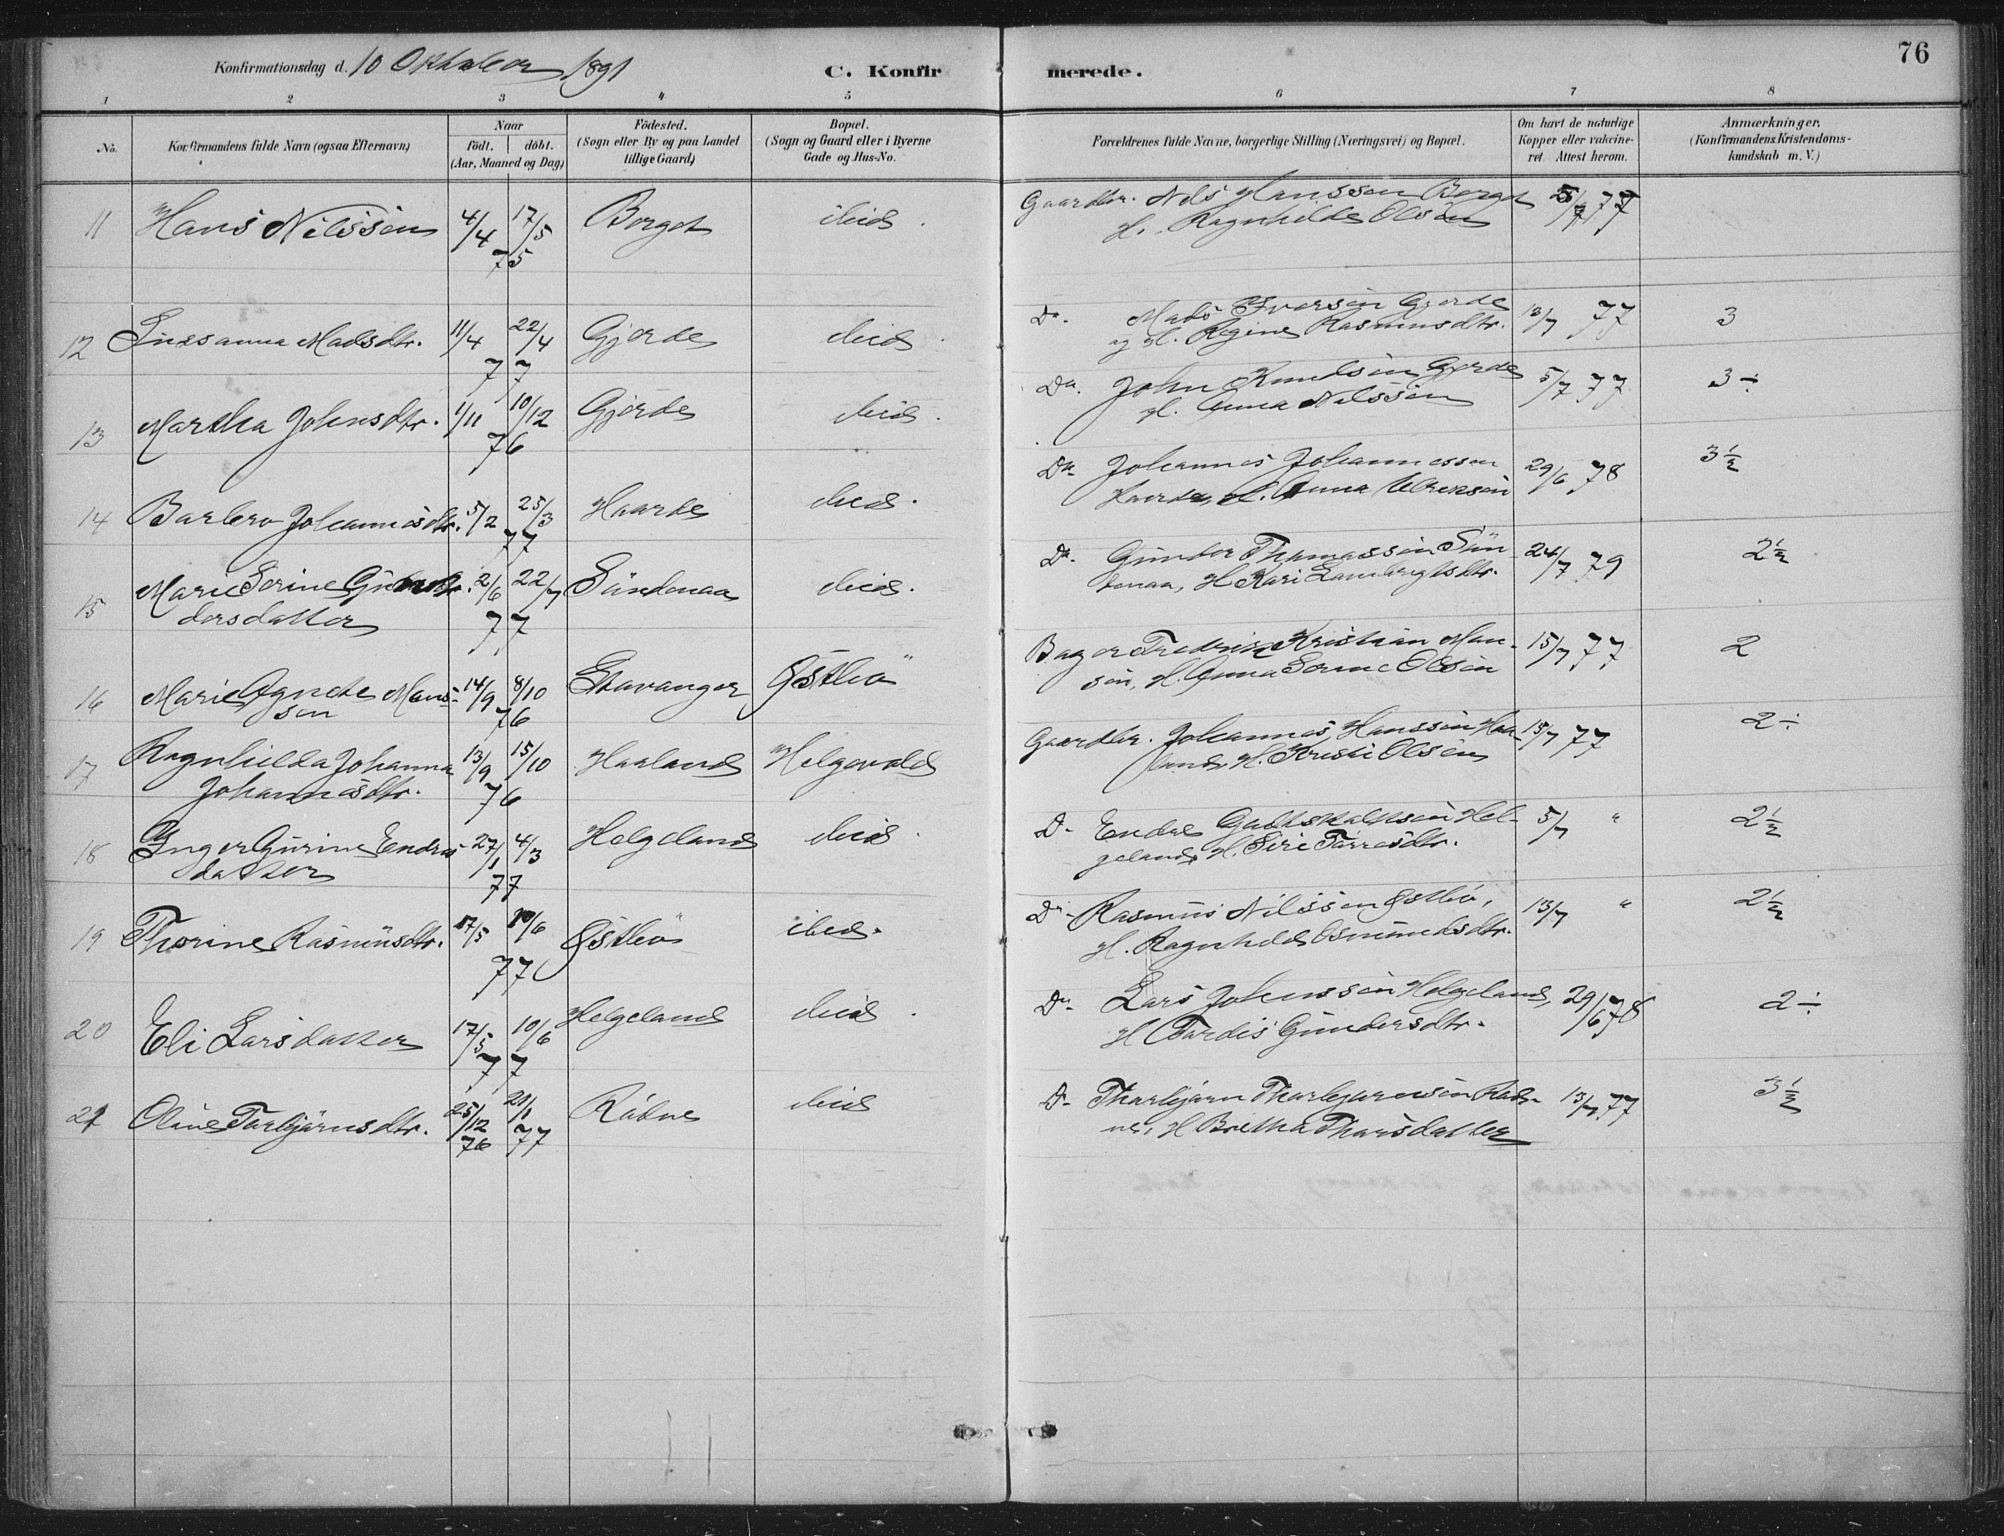 76
Konfirmationsdag d. 10 Oktober 1891
C. Konfirmerede.
1 2 3 4 5 6 7 8
No. Konfirmandens fulde Navn (ogsaa Efternavn) Naar født. døbt. (Aar, Maaned og Dag) Födested. (Sogn eller By og paa Landet tillige Gaard) Bopæl. (Sogn og Gaard eller i Byerne Gade og Hus-No. Forældrenes fulde Navne, borgerlige Stilling (Næringsvei) og Bopæl. Om havt de naturlige Kopper eller vakcineret Attest herom. Anmærkninger. (Konfirmandens Kristendomskundskab m. V.)
11 Hans Nilssen 4/4 17/5 75 Borget ibid. Gaardbr. Nils Hanssen Borget
H. Ragnhilde Olsen 77
12 Madsdtr. 11/4 22/4 77 Gjerde ibid. Do. Mads Iversen Gjerde
og H. Regine Rasmusdtr. 13/7 77 3
13 Martha Johnsdtr. 1/11 10/12 76 Gjerde ibid. Do. John Knudsen Gjerde
H. Anna Nilssen 5/7 77 3 ÷
14 Barbro Johannesdtr. 5/2 25/3 77 Haarde ibid. Do. Johannes Johannessen
Haarde, H. Anna Ulriksen 29/6 78 3 1/2
15 Marie Serine Gun
dersdatter 2/6 22/7 77 Søndenaa ibid. Do. Gunder Thomassen Søn
denaa, H. Kari Lambrigtsdtr. 24/7 79 2 1/2
16 Marie Agnete Mon
sen 14/9 8/10 76 Stavanger Østbø Bager Fredrik Kristian Mon-
sen, H. Anna Serine Olsen 15/7 77 2
17 Ragnhilda Johanna
Johannesdtr. 13/9 15/10 76 Haaland Helgevold Gaardbr. Johannes Hanssen Haa-
land, H. Kristi Olsen 15/7 77 2 ÷
18 Inger Gurine Endres
datter 27/1 4/3 77 Helgeland ibid. Do Endre Gudtskalksen Hel-
geland, H. Siri Tørresdtr. 5/7 " 2 1/2
19 Thorine Rasmusdtr. 17/5 10/6 77 Østbø ibid. Do. Rasmus Nilssen Østbø,
H. Ragnhild Osmundsdtr. 13/7 " 2 1/2
20 Eli Larsdatter 17/5 10/6 77 Helgeland ibid. Do Lars Johnssen Helgeland,
H. Tordis Gundersdtr. 29/6 78 2 ÷
21 Oline Torbjørnsdtr. 25/12 76 77 ibid Do Thorbjørn Thorbjørnsen
H. Britha Thorsdatter 13/7 77 3 1/2